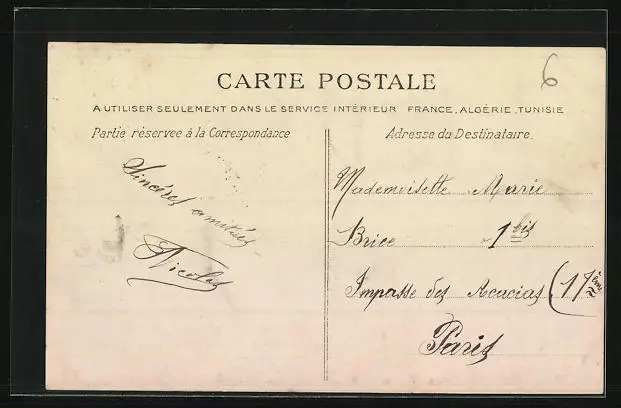 6
CARTE POSTALE
A UTILISER SEULEMENT DANS LE SERVICE INTÉRIEUR FRANCE, ALGÉRIE, TUNISIE
Partie réservée à la Correspondance
Adresse du Destinataire.
Sincères amitiés
Nicolas
Mademoiselle Marie
Brice 1 bis
Impasse des Acacias (17ème
Paris